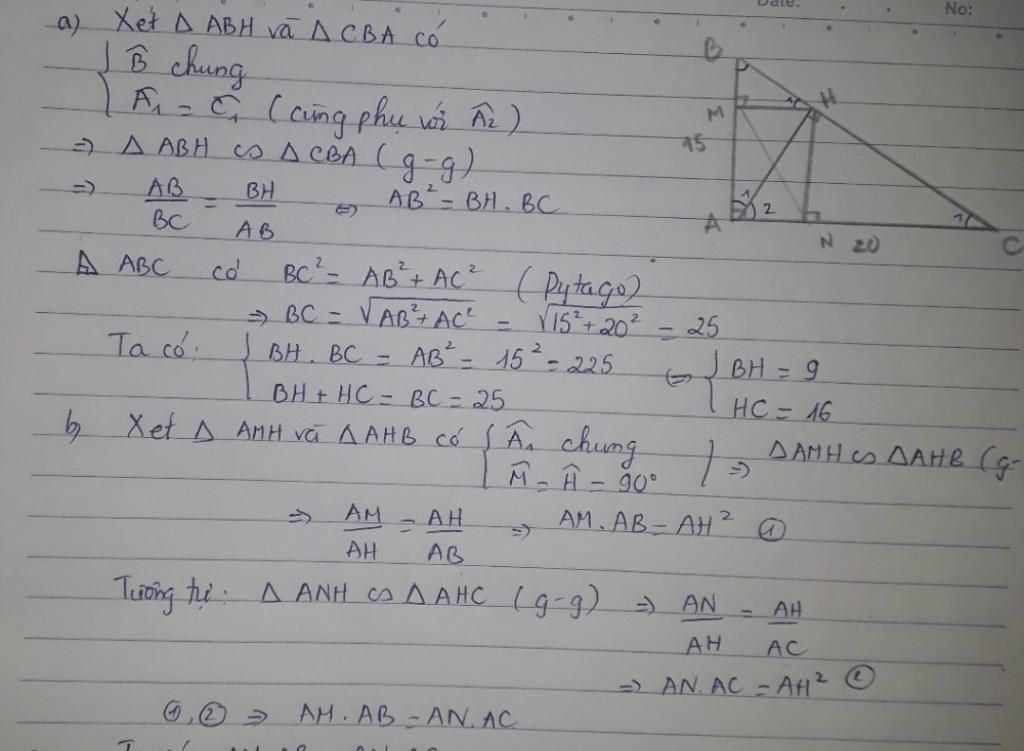 Date: No:
a) Xét Δ ABH và Δ CBA có
{ B̂ chung
Â₁ = Ĉ₁ (cùng phụ với Â₂)
⇒ Δ ABH ∽ Δ CBA (g-g)
⇒ AB/BC = BH/AB ⇔ AB² = BH.BC
Δ ABC có BC² = AB² + AC² (Pytago)
⇒ BC = √(AB²+AC²) = √(15²+20²) = 25
Ta có: { BH.BC = AB² = 15² = 225 ⇔ { BH = 9
BH + HC = BC = 25 HC = 16
b) Xét Δ AMH và Δ AHB có { Â₁ chung } ⇒ ΔAMH ∽ ΔAHB (g-
M̂ = Ĥ = 90°
⇒ AM/AH = AH/AB ⇒ AM.AB = AH² ①
Tương tự: Δ ANH ∽ ΔAHC (g-g) ⇒ AN/AH = AH/AC
⇒ AN.AC = AH² ②
①,② ⇒ AM.AB = AN.AC
B
M
1
H
15
A
1
2
N
20
1
C